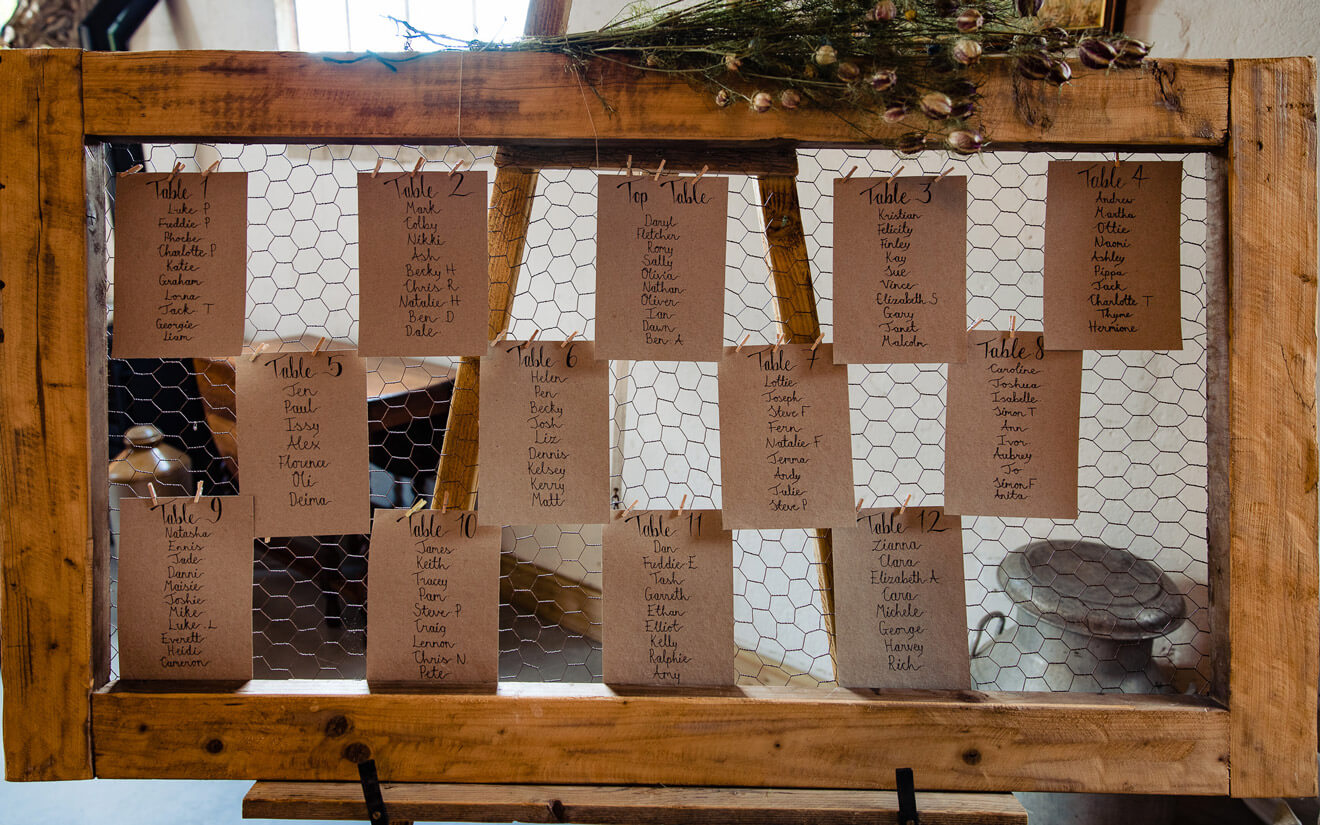 Table 1
Luke P
Freddie P
Phoebe
Charlotte P
Katie
Graham
Lorna
Jack T
Georgie
Liam
Table 2
Mark
Colby
Nikki
Ash
Becky H
Chris R
Natalie H
Ben D
Dale
Top Table
Daryl
Fletcher
Romy
Sally
Olivia
Nathan
Oliver
Ian
Dawn
Ben A
Table 3
Kristian
Felicity
Finley
Kay
Sue
Vince
Elizabeth S
Gary
Janet
Malcolm
Table 4
Andrew
Martha
Ottie
Naomi
Ashley
Pippa
Jack
Charlotte T
Thyme
Hermione
Table 5
Jen
Paul
Issy
Alex
Florence
Oli
Deima
Table 6
Helen
Pen
Becky
Josh
Liz
Dennis
Kelsey
Kerry
Matt
Table 7
Lottie
Joseph
Steve F
Fern
Natalie F
Jemma
Andy
Julie
Steve P
Table 8
Caroline
Joshua
Isabelle
Simon T
Ann
Ivor
Aubrey
Jo
Simon F
Anita
Table 9
Natasha
Ennis
Jade
Danni
Maisie
Joshie
Mike
Luke L
Everett
Heidi
Cameron
Table 10
James
Keith
Tracey
Pam
Steve P
Craig
Lennon
Chris N
Pete
Table 11
Dan
Freddie E
Tash
Garreth
Ethan
Elliot
Kelly
Ralphie
Amy
Table 12
Zianna
Clara
Elizabeth A
Cara
Michele
George
Harvey
Rich